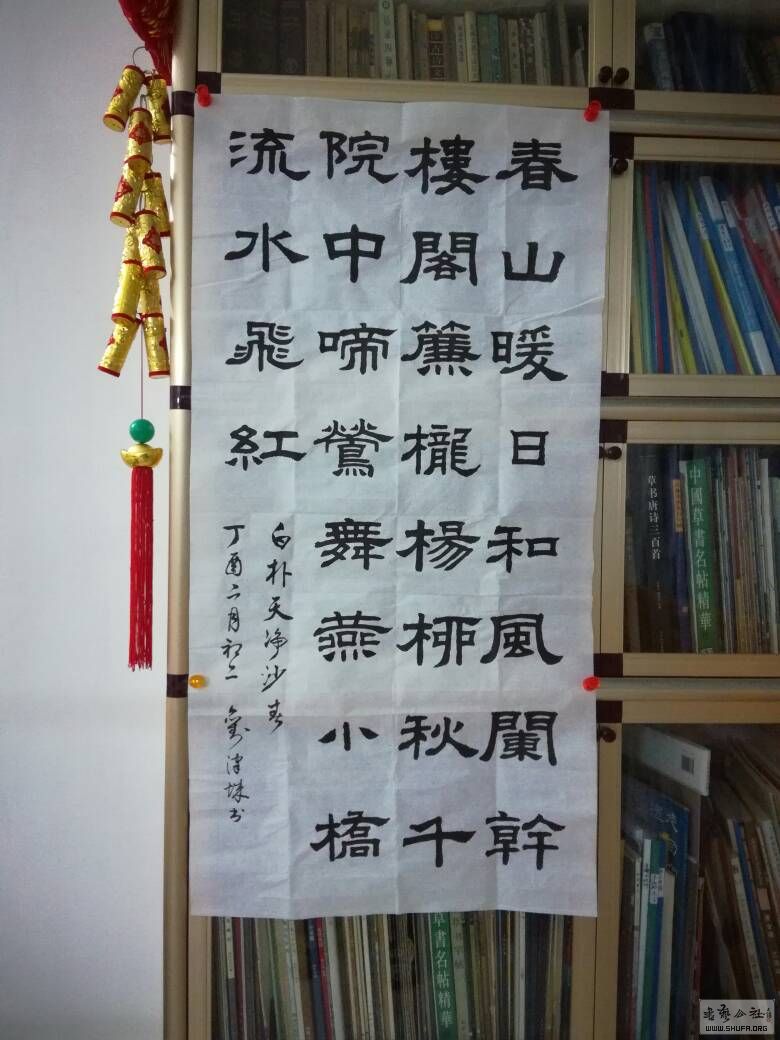 春山暖日和風闌幹
樓閣簾櫳楊柳秋千
院中啼鶯舞燕小橋
流水飛紅
白朴天净沙春
丁酉二月初二
中國草書名帖精華
草书唐诗三百首
草書名帖精華
書藝公社
WWW.SHUFA.ORG